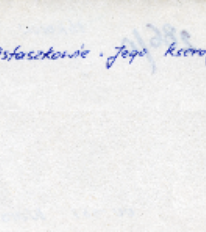 istaszkowie. Jego ksero